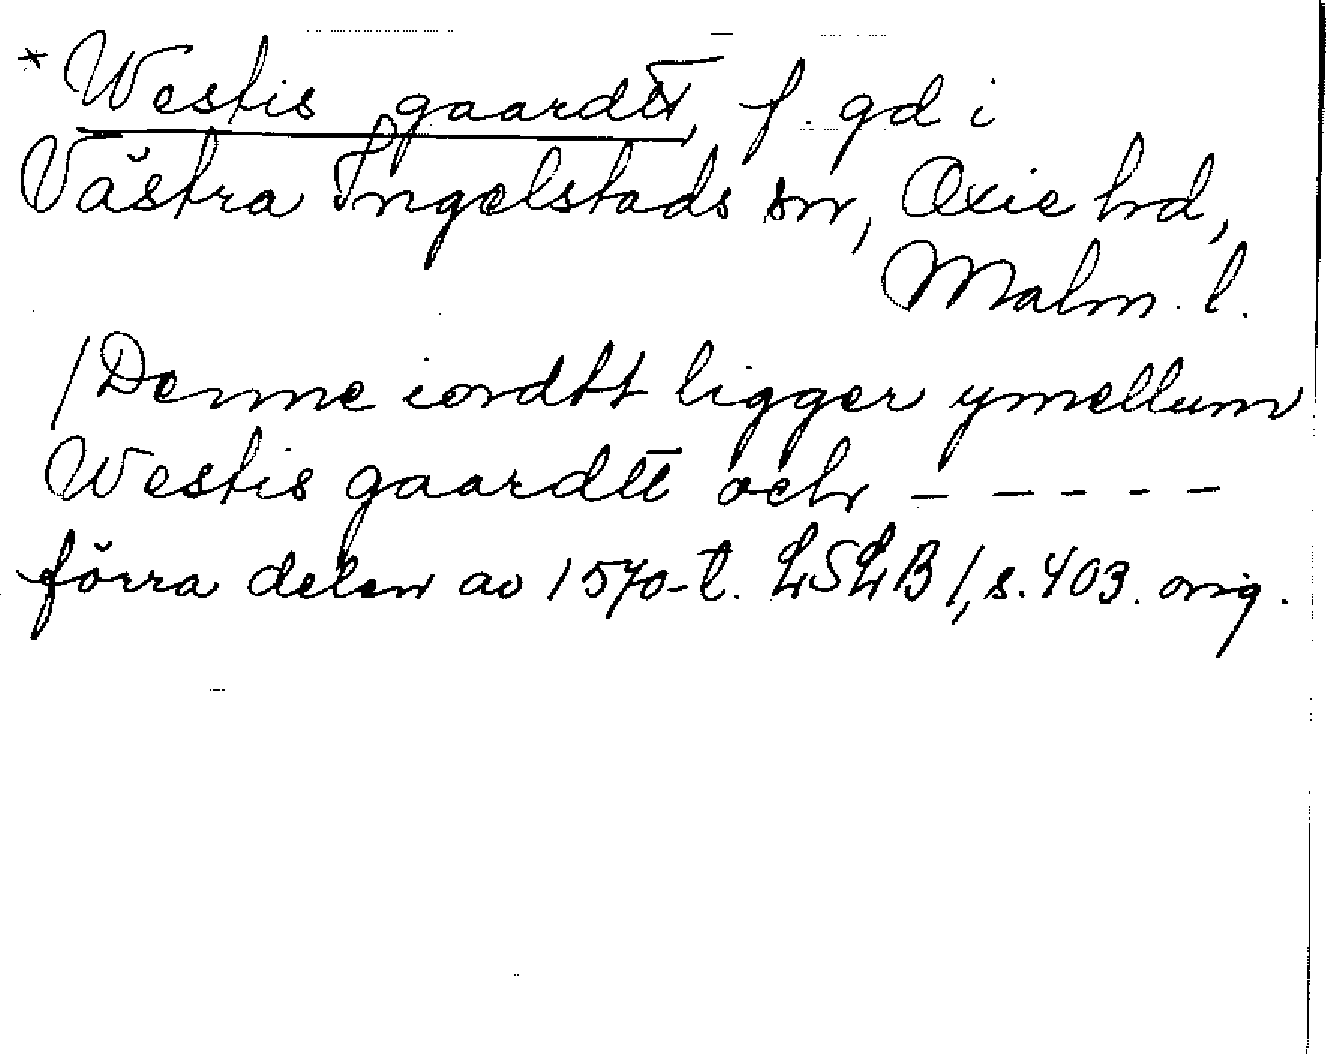 * Westis gaardtt, f. gd i
Västra Ingelstads sn, Oxie hd,
Malm. l.
/Denne iordtt ligger ymellum
Westis gaardtt och - - - - -
förra delen av 1570-t. LSLB 1, s. 403. orig.